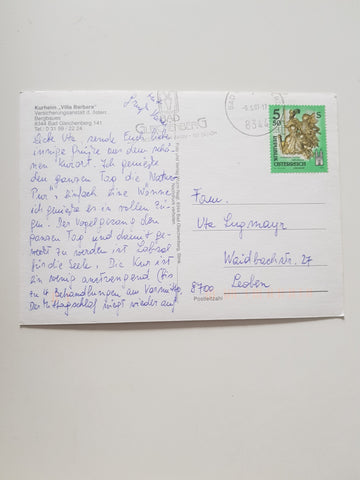 Kurheim „Villa Barbara"
Versicherungsanstalt d. österr.
Bergbaues
8344 Bad Gleichenberg 141
Tel.: 0 31 59 / 22 24
BAD
GLEICHENBERG
8344
5 50
S
REPUBLIK
ÖSTERREICH
Liebe Ute sende Euch liebe
innige Grüße aus dem schö-
nen Kurort. Ich genieße
den ganzen Tag die Natur
Pur", Einfach Eine Wonne
ich genieße es in vollen Zü-
gen. Der Vogelgesang den
ganzen Tag und damit ge-
weckt zu werden ist Labsal
für die Seele. Die Kur ist
Ein wenig anstrengend (bis
zu 4 Behandlungen am Vormittag
Der Mittagschlaf wiegt wieder auf
Fam.
Ute Lugmayr
Waidbachstr. 27
8700 Leoben
Postleitzahl